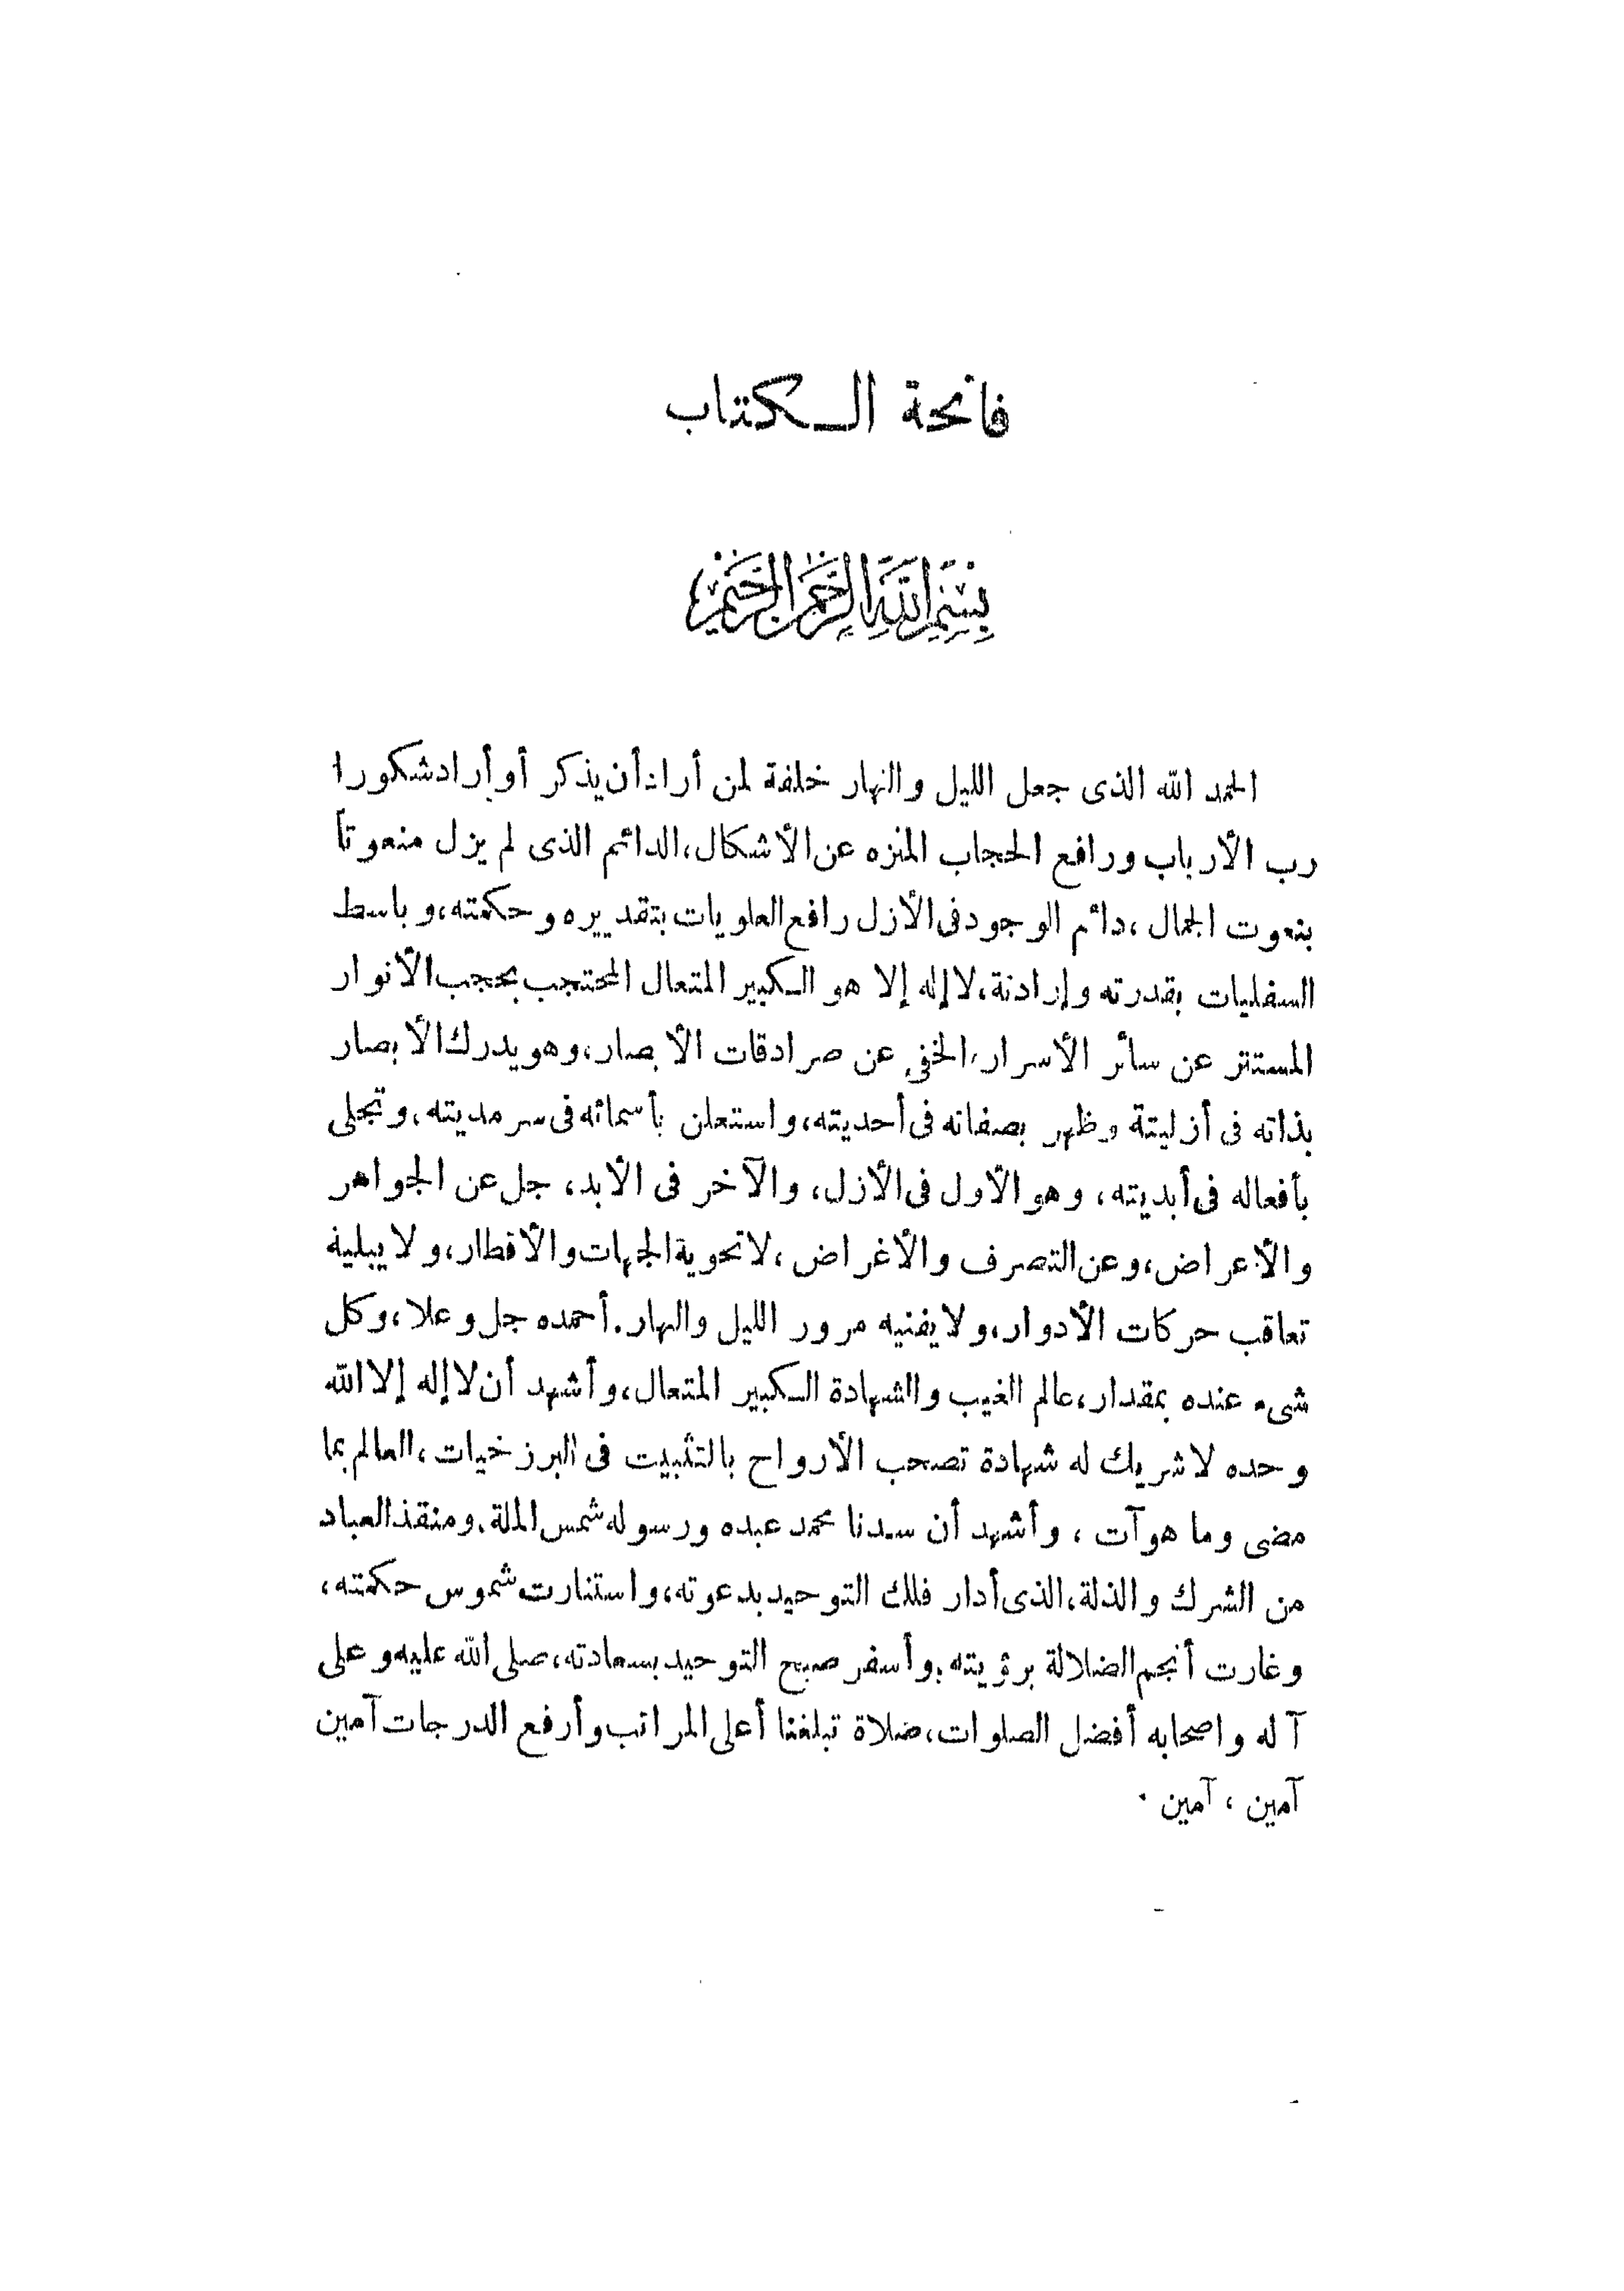 فاتحة الكتاب
بسم الله الرحمن الرحيم
الحمد الله الذى جعل الليل والنهار خلفة لمن أراد أن يذكر أو أراد شكورا
رب الأرباب ورافع الحجاب المنزه عن الأشكال، الدائم الذى لم يزل منعوتاً
بنعوت الجمال، دائم الوجود فى الأزل رافع العلويات بتقديره وحكمته، وباسط
السفليات بقدرته وإرادنة، لا إله إلا هو الكبير المتعال المحتجب بحجب الأنوار
المستتر عن سائر الأسرار، الخفى عن صرادقات الأبصار، وهو يدرك الأبصار
بذاته فى أزليتة وظهر بصفاته فى أحديته، واستعلن بأسمائه فى سرمديته، وتجلى
بأفعاله فى أبديته، وهو الأول فى الأزل، والآخر فى الأبد، جل عن الجواهر
والأعراض، وعن التصرف والأغراض، لا تحوية الجهات والأقطار، ولا يبلية
تعاقب حركات الأدوار، ولا يفنيه مرور الليل والنهار. أحمده جل وعلا، وكل
شىء عنده بمقدار، عالم الغيب والشهادة الكبير المتعال، وأشهد أن لا إله إلا الله
وحده لا شريك له شهادة تصحب الأرواح بالتثبيت فى البرزخيات، العالم بما
مضى وما هو آت، وأشهد أن سدنا محمد عبده ورسوله شمس الملة، ومنقذ العباد
من الشرك والذلة، الذى أدار فلك التوحيد بدعوته، واستنارت شموس حكمته،
وغارت أنجم الضلالة برؤيته، وأسفر صبح التوحيد بسعادته، صلى الله عليه وعلى
آله واصحابه أفضل الصلوات، صلاة تبلغنا أعلى المراتب وأرفع الدرجات آمين
آمين، آمين.